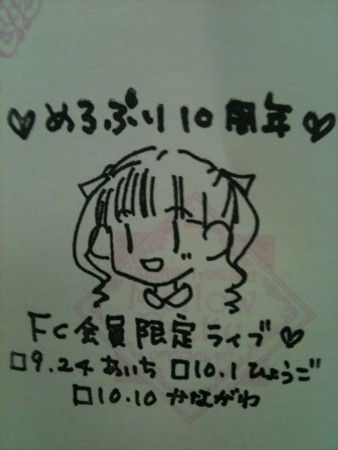 ♡めろぷり10周年♡
FC会員限定ライブ♡
□9.24あいち □10.1ひょうご
□10.10かながわ